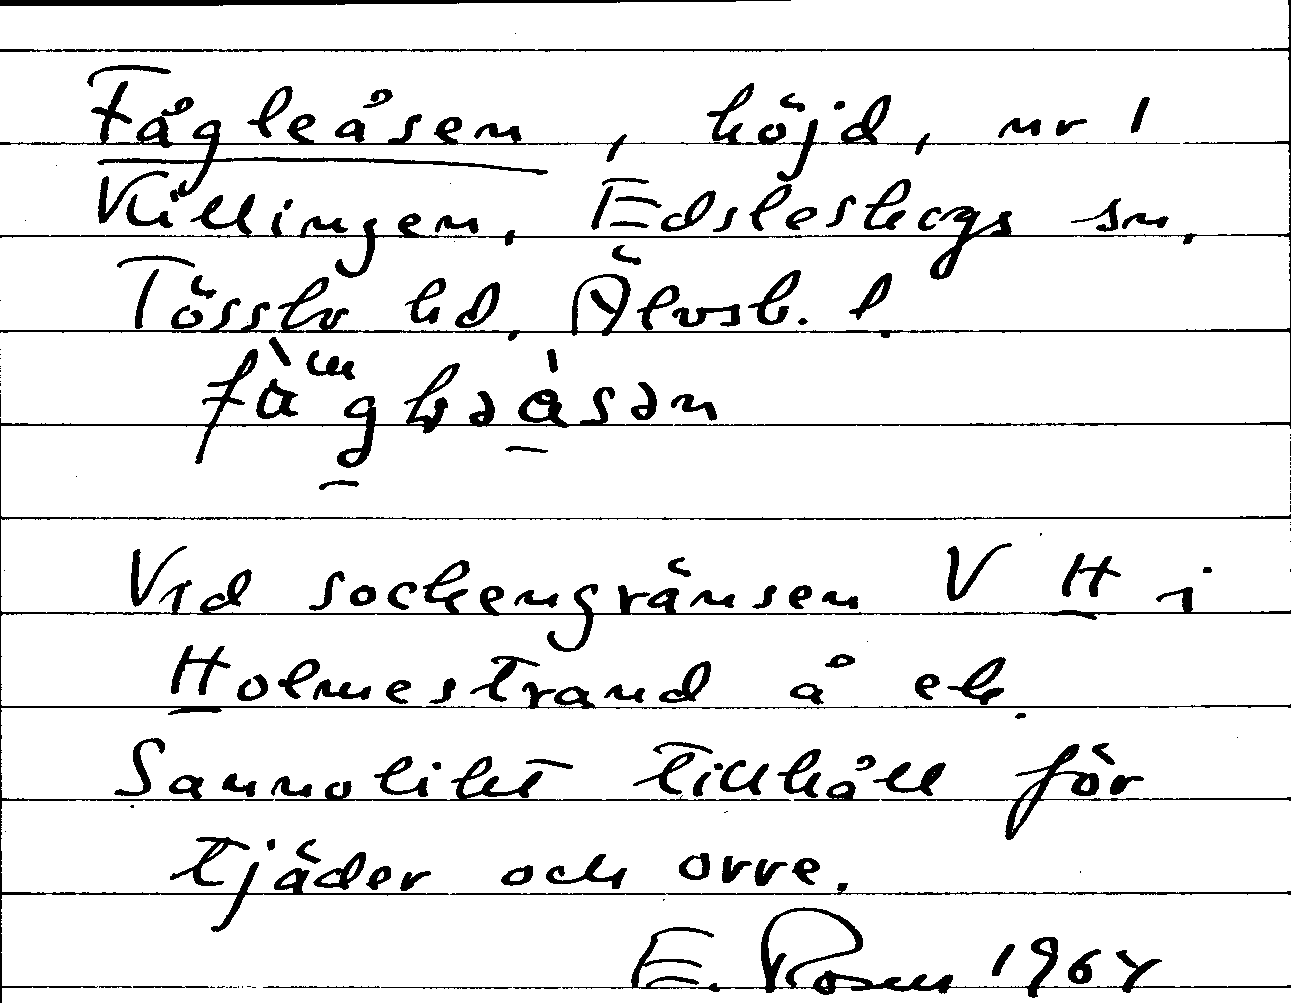 Fågleåsen, höjd, nr 1
Källingen, Edsleskogs sn,
Tössbo hd. Älvsb. l.
Vid sockengränsen V H i
Holmestrand å ek.
Sannolikt tillhåll för
tjäder och orre.
E. Rosen 1964